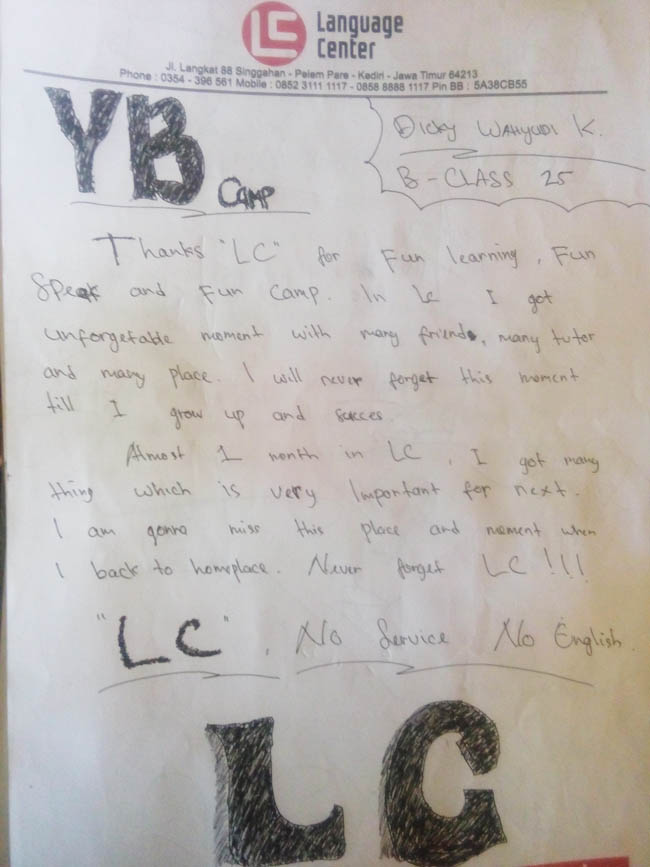 LC Language
Center
Jl. Langkat 88 Singgahan - Pelem Pare - Kediri - Jawa Timur 64213
Phone : 0354 - 396 561 Mobile : 0852 3111 1117 - 0858 8888 1117 Pin BB : 5A38CB55
YB CAMP
Dicky WAHYUDI K.
B - CLASS 25
Thanks "LC" for Fun learning, Fun
Speak and Fun Camp. In Lc I got
unforgetable moment with many friends, many tutor
and many place. I will never forget this moment
till I grow up and succes.
Almost 1 month in LC, I got many
thing which is very Important for next.
I am gonna miss this place and moment when
I back to homeplace. Never forget LC !!!
"LC", No Service No English.
LC